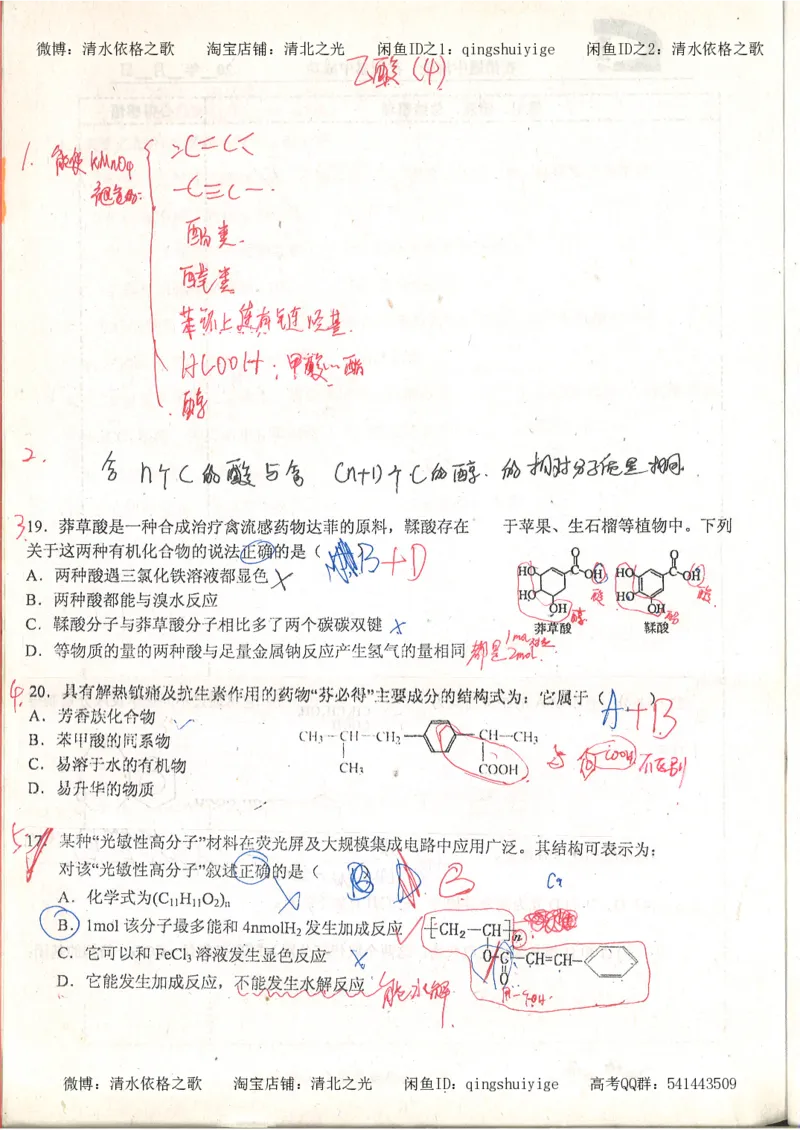 微博：清水依格之歌 淘宝店铺：清北之光 闲鱼ID之1：qingshuiyige 闲鱼ID之2：清水依格之歌
乙酸（4）
1. 能使KMnO4
褪色的：
>C=C<
-C≡C-.
酚类.
醛类
苯环上连有链烃基.
HCOOH；甲酸…酯
醇
2. 含n个C的酸与含(n+1)个C的醇.的相对分子质量相同.
3 19．莽草酸是一种合成治疗禽流感药物达菲的原料，鞣酸存在 于苹果、生石榴等植物中。下列
关于这两种有机化合物的说法正确的是（ B+D
A．两种酸遇三氯化铁溶液都显色 ×
B．两种酸都能与溴水反应
C．鞣酸分子与莽草酸分子相比多了两个碳碳双键 ×
D．等物质的量的两种酸与足量金属钠反应产生氢气的量相同 都是 2mol.
HO HO OH O OH 酸 醇
莽草酸
HO HO OH O OH 酸 酚
鞣酸
4. 20．具有解热镇痛及抗生素作用的药物“芬必得”主要成分的结构式为：它属于（ A+B ）
A．芳香族化合物 ✓
B．苯甲酸的同系物
C．易溶于水的有机物
D．易升华的物质
CH3—CH—CH2— —CH—CH3
CH3 COOH
与 COOH 不区别
5. 17．某种“光敏性高分子”材料在荧光屏及大规模集成电路中应用广泛。其结构可表示为：
对该“光敏性高分子”叙述正确的是（ B D B
A．化学式为(C11H11O2)n ×
B．1mol 该分子最多能和 4nmolH2 发生加成反应 ✓
C．它可以和 FeCl3 溶液发生显色反应 ×
D．它能发生加成反应，不能发生水解反应 能水解
[CH2—CH]n
O—C—CH=CH—
O
微博：清水依格之歌 淘宝店铺：清北之光 闲鱼ID：qingshuiyige 高考QQ群：541443509